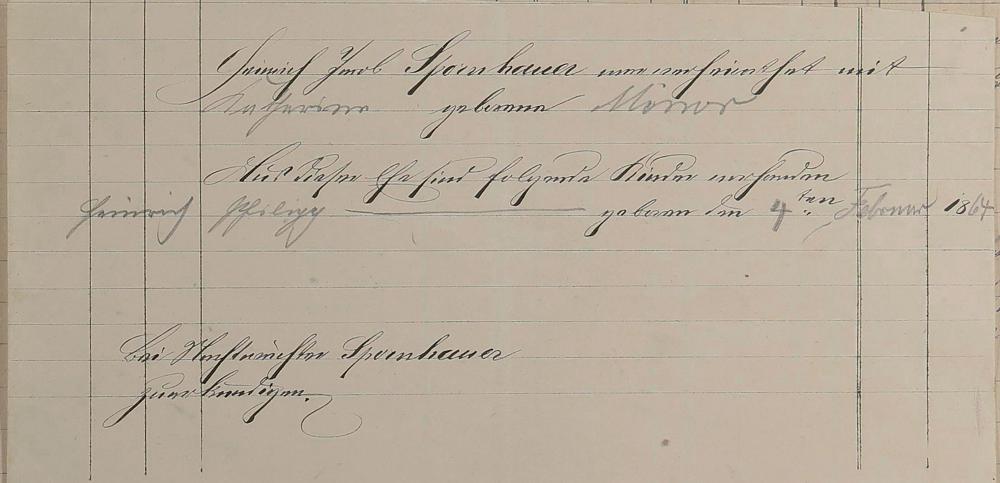 Heinrich Jacob Spornhauer war verheirathet mit
Katharine geborene Minor
Aus dieser Ehe sind folgende Kinder vorhanden
Heinrich Philipp geboren den 4ten Februar 1864
Bei Nachtwächter Spornhauer
zu erkundigen.